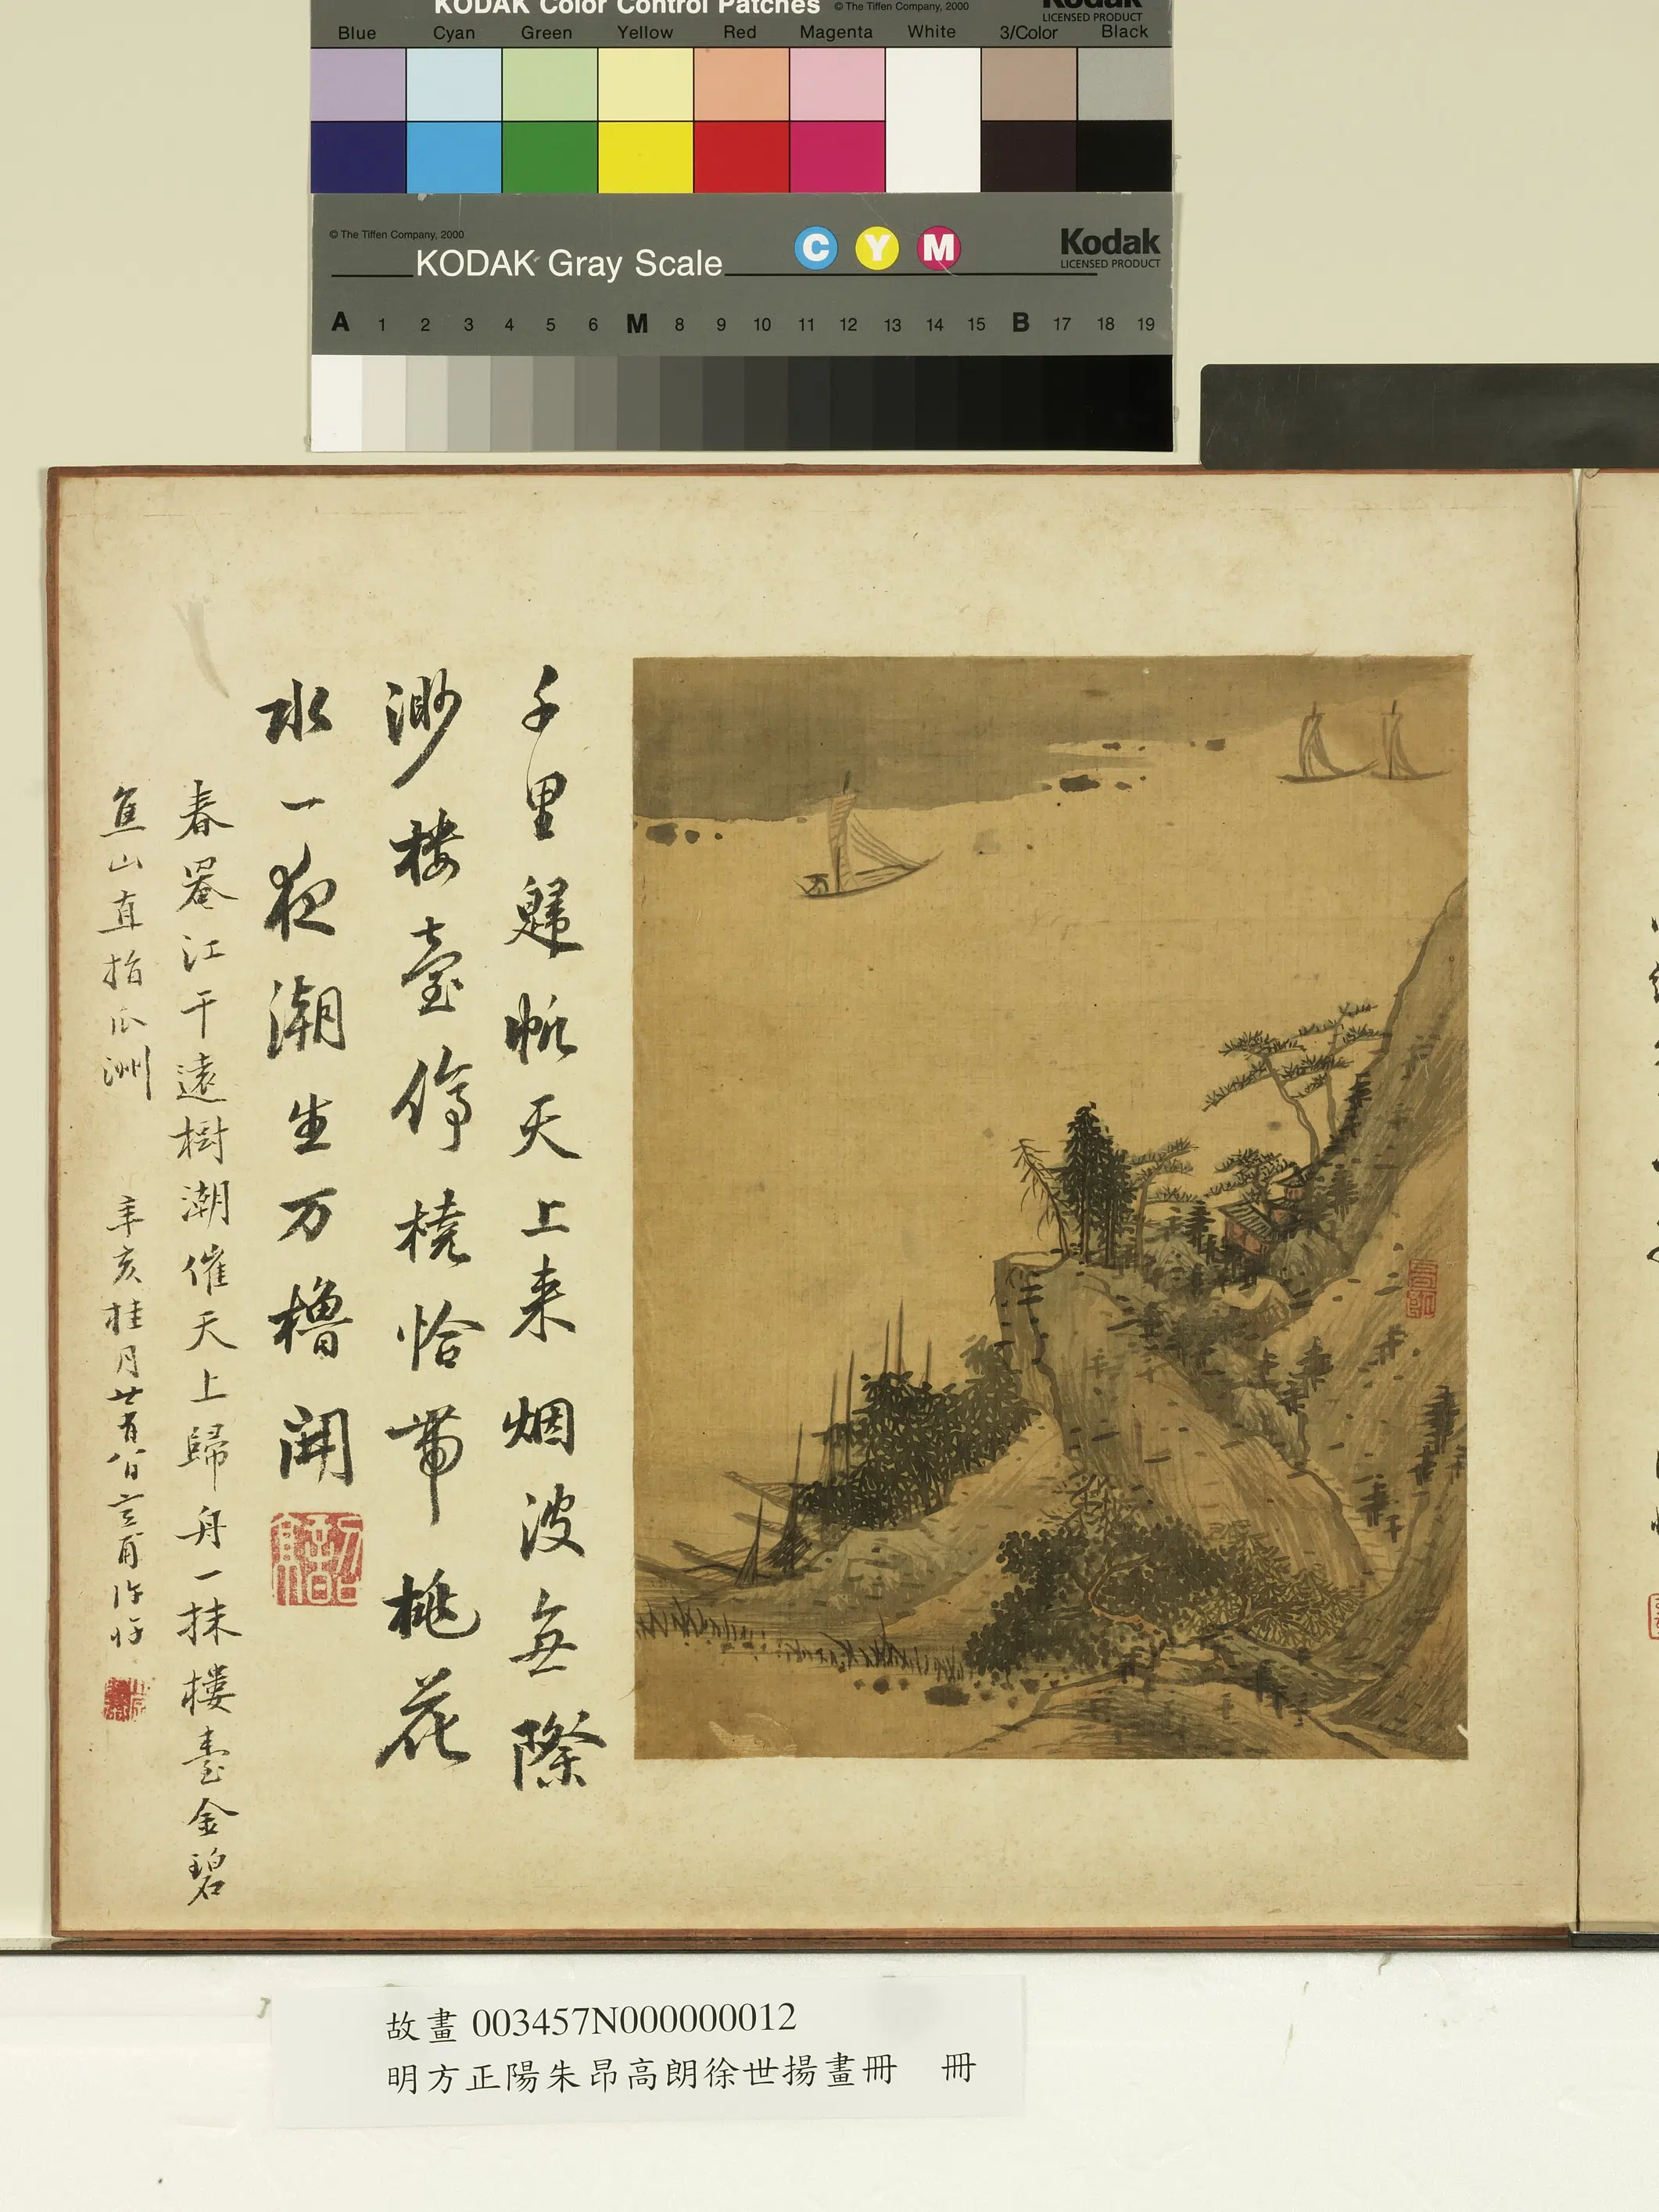 KODAK Color Control Patches © The Tiffen Company, 2000 Kodak
LICENSED PRODUCT
Blue Cyan Green Yellow Red Magenta White 3/Color Black
© The Tiffen Company, 2000
KODAK Gray Scale C Y M Kodak
LICENSED PRODUCT
A 1 2 3 4 5 6 M 8 9 10 11 12 13 14 15 B 17 18 19
千里歸帆天上来烟波無際
渺楼臺停橈恰帶桃花
水一夜潮生万櫓開
春罨江干遠樹潮催天上歸舟一抹樓臺金碧
焦山直指瓜洲
辛亥桂月廿有八日
故畫003457N000000012
明方正陽朱昂高朗徐世揚畫冊 冊